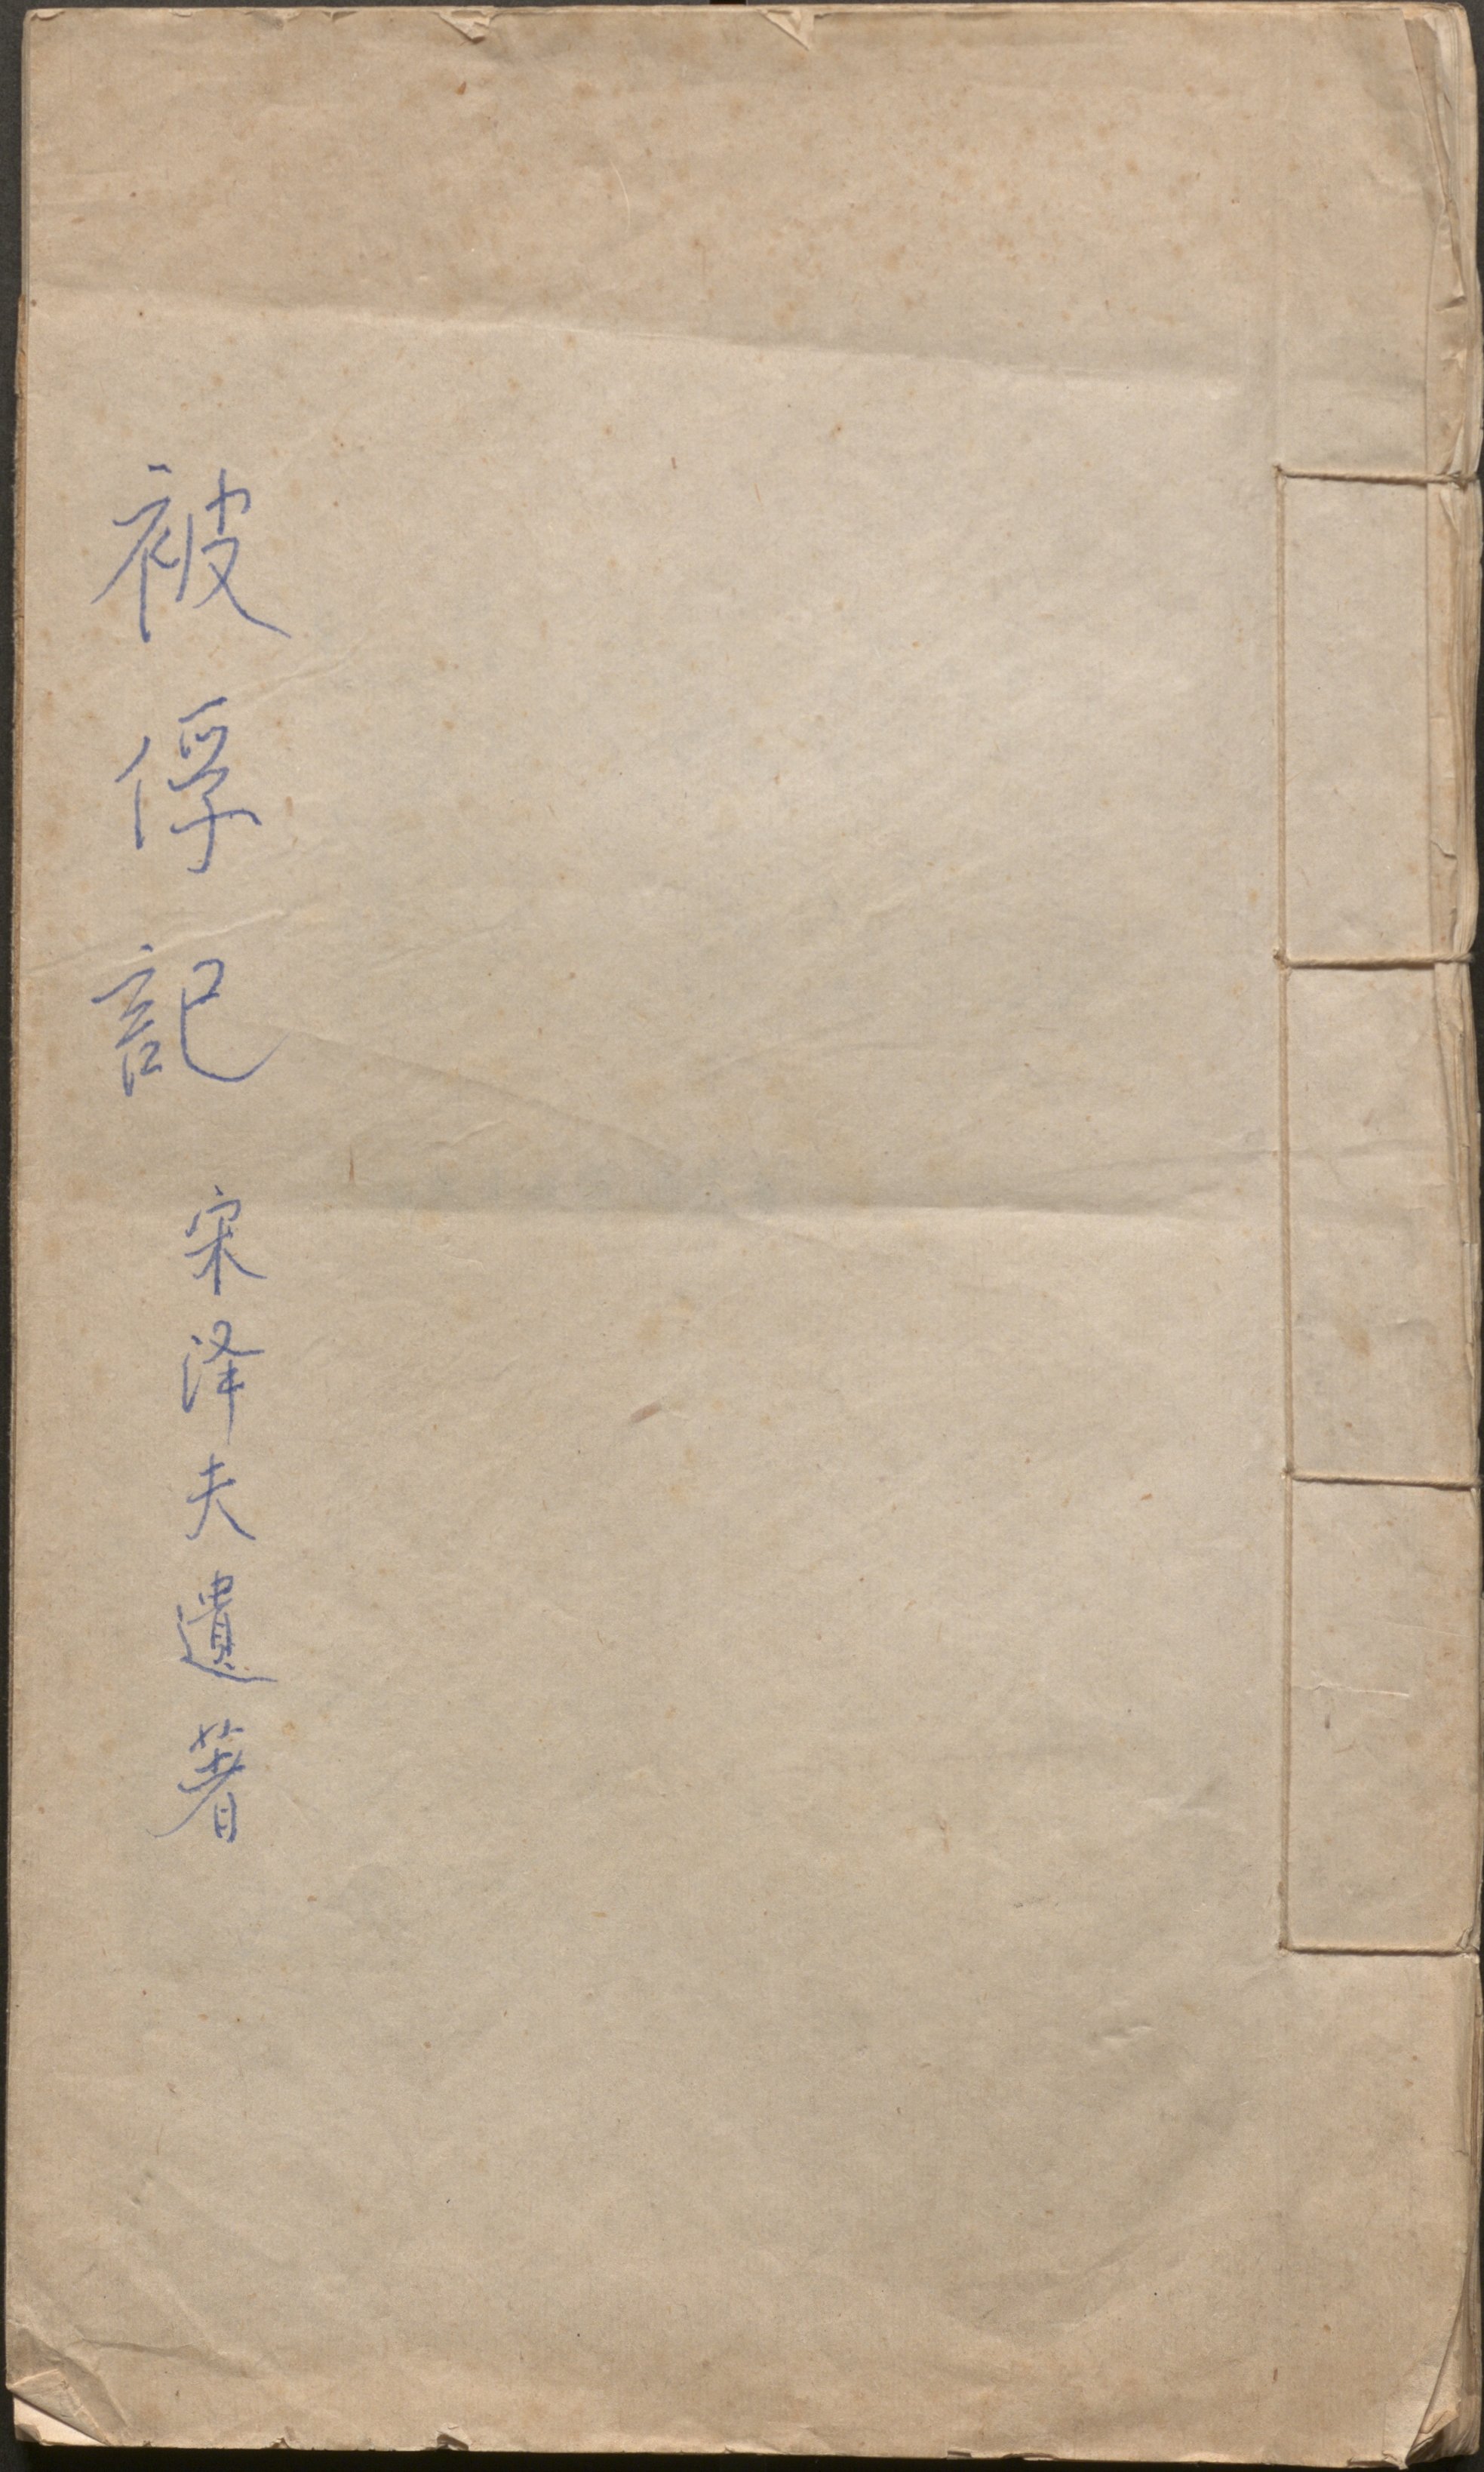 被俘記
宋泽夫遺著